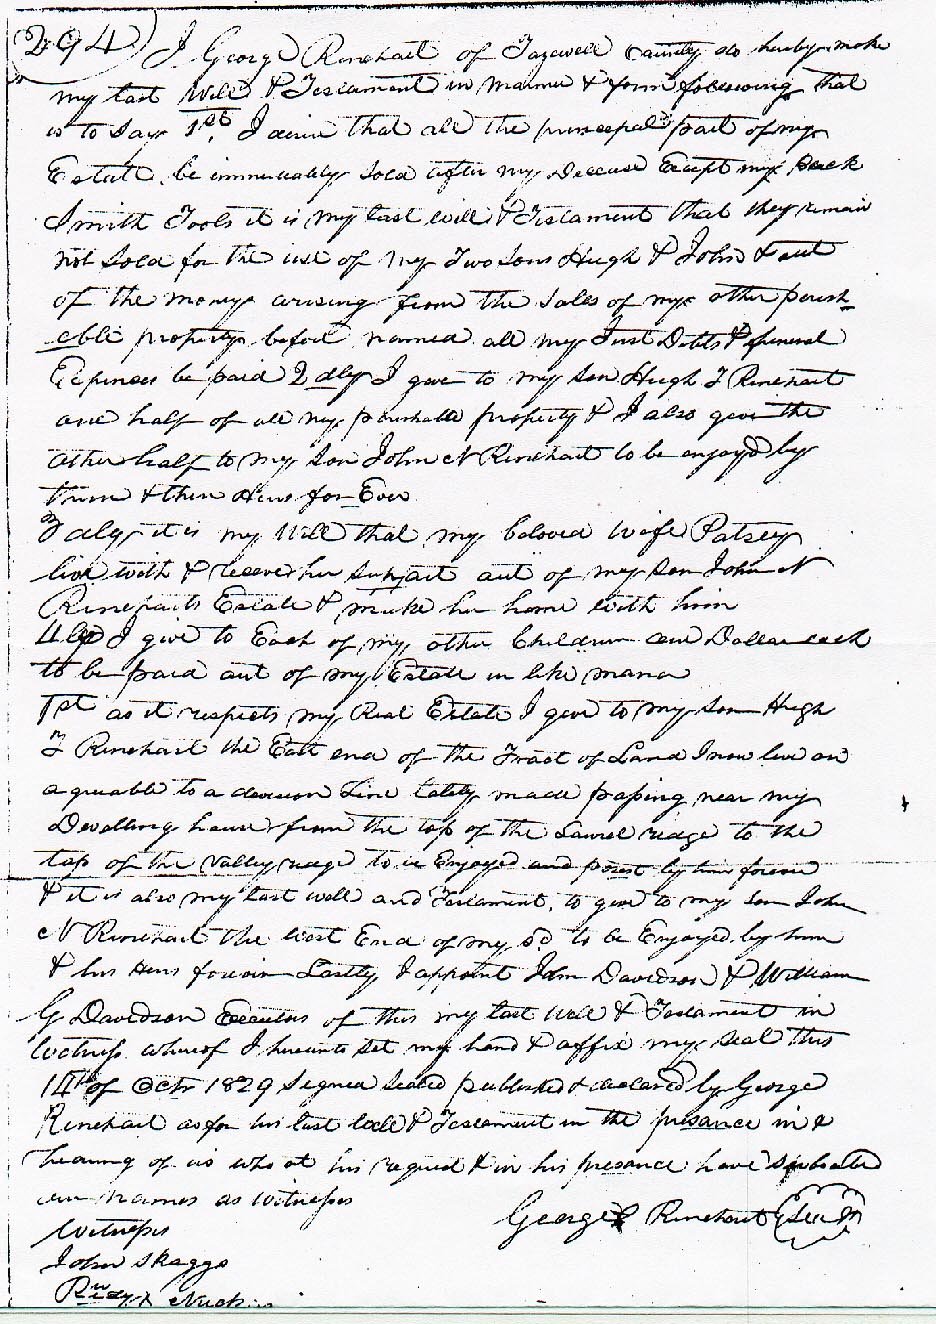 294) I George Rinehart of Tazewell County do hereby make
my last Will & Testament in manner & form following that
is to say 1st, I desire that all the principal part of my
Estate be immediately sold after my Decease Except my Black
Smith Tools it is my last will & Testament that they remain
not sold for the use of my Two sons Hugh & John & out
of the money arising from the Sales of my other perish
=able property before named all my Just Debts & funeral
Expences be paid 2dly I give to my son Hugh T Rinehart
one half of all my perishable property & I also give the
other half to my son John N Rinehart to be enjoyd by
them & their Heirs for Ever
3dly it is my Will that my beloved wife Patsey
live with & receive her support out of my son John N
Rineharts Estate & make her home with him
4ly I give to Each of my other Children one Dollar each
to be paid out of my Estate in like manor
1st as it respects my Real Estate I give to my son Hugh
T Rinehart the East end of the Tract of Land I now live on
agreable to a devision Line lately made passing near my
Dwelling house from the top of the Laurel ridge to the
top of the Valley ridge to be Enjoyed and posest by him forever
& it is also my last will and Testament, to give to my son John
N Rinehart the west End of my sd to be Enjoyed by him
& his Heirs forever Lastly I appoint John Davidson & William
G Davidson Executors of this my last Will & Testament in
Witness whereof I hereunto set my hand & affix my seal this
14th of Octr 1829 Signed Sealed published & declared by George
Rinehart as for his last will & Testament in the presance in &
hearing of us who at his request & in his presance have Subscribed
our names as Witnesses
George Rinehart Seal
Witness
John Skaggs